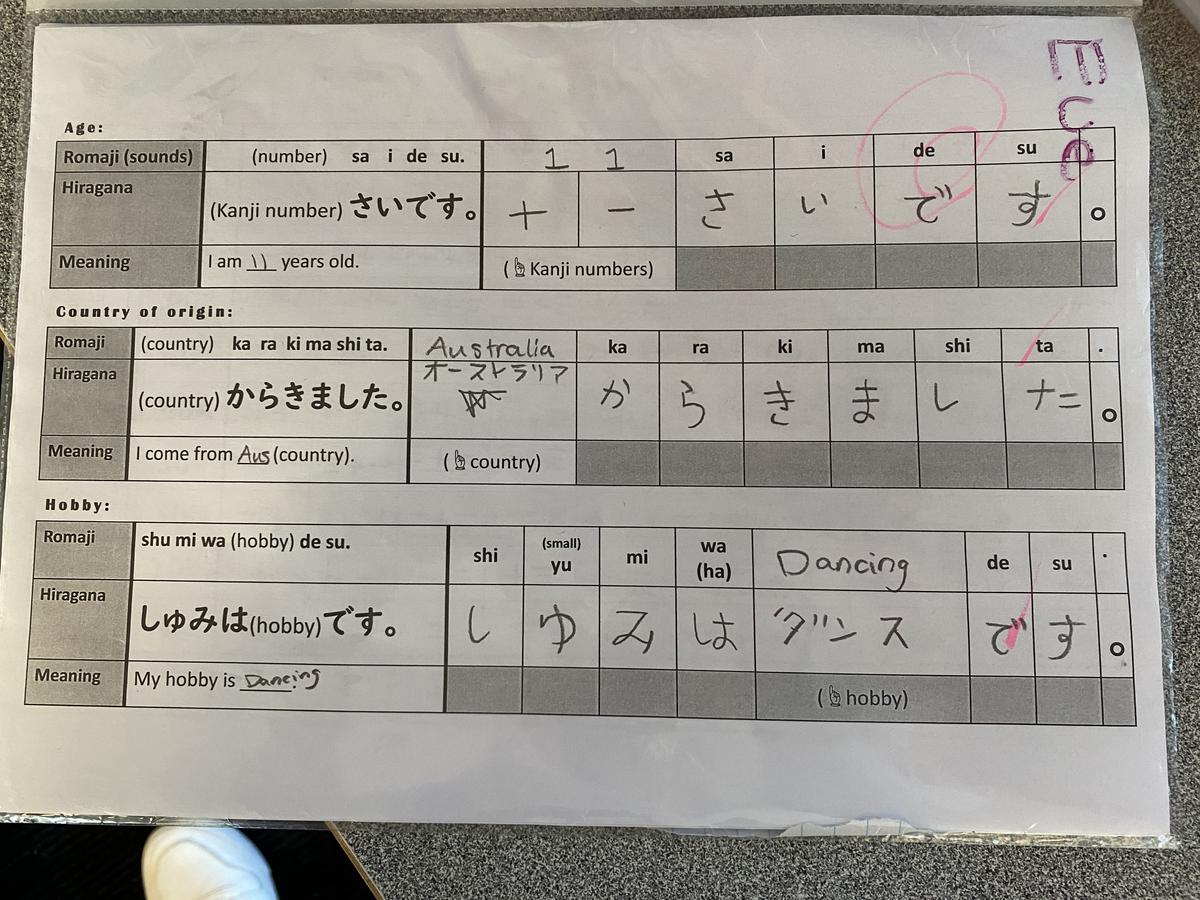 Eve
Age:
Romaji (sounds) (number) sa i de su. 1 1 sa i de su
Hiragana (Kanji number) さいです。 十 一 さ い で す 。
Meaning I am 11 years old. (Kanji numbers)
Country of origin:
Romaji (country) ka ra ki ma shi ta. Australia ka ra ki ma shi ta .
Hiragana (country) からきました。 オーストラリア か ら き ま し た 。
Meaning I come from Aus (country). (country)
Hobby:
Romaji shu mi wa (hobby) de su. shi (small) yu mi wa (ha) Dancing de su .
Hiragana しゅみは(hobby)です。 し ゆ み は ダンス で す 。
Meaning My hobby is Dancing (hobby)